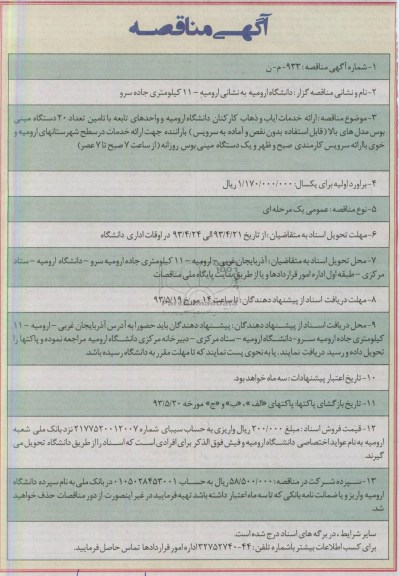 آگهی مناقصه
۱-شماره آگهی مناقصه : ۹۳۳-م-ن
۲-نام و نشانی مناقصه گزار : دانشگاه ارومیه به نشانی ارومیه – ۱۱ کیلومتری جاده سرو
۳-موضوع مناقصه : ارائه خدمات ایاب و ذهاب کارکنان دانشگاه ارومیه و واحدهای تابعه با تامین تعداد ۲۰ دستگاه مینی
بوس مدل های بالا (قابل استفاده بدون نقص و آماده به سرویس) باراننده جهت ارائه خدمات در سطح شهرستانهای ارومیه و
خوی باارائه سرویس کارمندی صبح و ظهر و یک دستگاه مینی بوس روزانه (از ساعت ۷ صبح تا ۷ عصر)
۴-براورد اولیه برای یکسال: ۱/۱۷۰/۰۰۰/۰۰۰ ریال
۵-نوع مناقصه: عمومی یک مرحله ای
۶-مهلت تحویل اسناد به متقاضیان : از تاریخ ۹۳/۴/۲۱ الی ۹۳/۴/۲۴ در اوقات اداری دانشگاه
۷-محل تحویل اسناد به متقاضیان : آذربایجان غربی – ارومیه – ۱۱ کیلومتری جاده ارومیه سرو – دانشگاه ارومیه – ستاد
مرکزی – طبقه اول اداره امور قراردادها و یا از طریق سایت پایگاه ملی مناقصات
۸-مهلت دریافت اسناد از پیشنهاد دهندگان : تا ساعت ۱۴ مورخ ۹۳/۵/۱۹
۹-محل دریافت اسناد از پیشنهاد دهندگان : پیشنهاد دهندگان باید حضورا به آدرس آذربایجان غربی – ارومیه – ۱۱
کیلومتری جاده ارومیه سرو – دانشگاه ارومیه – ستاد مرکزی – دبیرخانه مرکزی دانشگاه ارومیه مراجعه نموده و پاکتها را
تحویل داده و رسید دریافت نمایند . یا به نحوی پست نمایند که تا مهلت مقرر به دانشگاه رسیده باشد.
۱۰-تاریخ اعتبار پیشنهادات : سه ماه خواهد بود.
۱۱-تاریخ بازگشای پاکتها: پاکتهای «الف»، «ب» و «ج» مورخه ۹۳/۵/۲۰
۱۲- قیمت فروش اسناد : مبلغ ۲۰۰/۰۰۰ ریال واریزی به حساب سیبای شماره ۲۱۷۷۵۲۰۰۱۲۰۰۷ نزد بانک ملی شعبه
ارومیه به نام عواید اختصاصی دانشگاه ارومیه و فیش فوق الذکر برای افرادی است که اسناد را از طریق دانشگاه تحویل می
گیرند.
۱۳- سپرده شرکت در مناقصه : ۵۸/۵۰۰/۰۰۰ ریال به حساب ۰۱۰۵۰۲۸۴۵۳۰۰۱ در بانک ملی به نام سپرده دانشگاه
ارومیه واریز و یا ضمانت نامه بانکی که تا سه ماه اعتبار داشته باشد تهیه فرمایید در غیر اینصورت از دور مناقصات حذف خواهید
شد.
سایر شرایط ، در برگه های اسناد درج شده است.
برای کسب اطلاعات بیشتر با شماره تلفن : ۴۴-۳۲۷۵۲۷۴۰ اداره امور قراردادها تماس حاصل فرمایید.